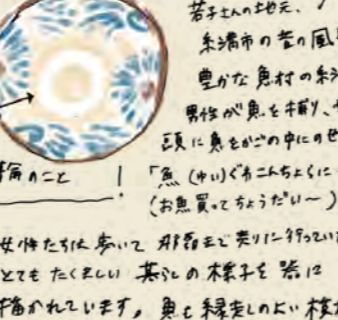 若子さんの地元、
糸満市の昔の風
豊かな魚村の糸
男性が魚を捕り、
頭に魚をかごの中にのせ
輪のこと
「魚(ゆい)ぐゎこんちょらに
(お魚買ってちょうだい〜)
女性たちは歩いて那覇まで売りに行ってい
とてもたくましい暮らしの様子を器に
描かれています。魚も縁起のよい模